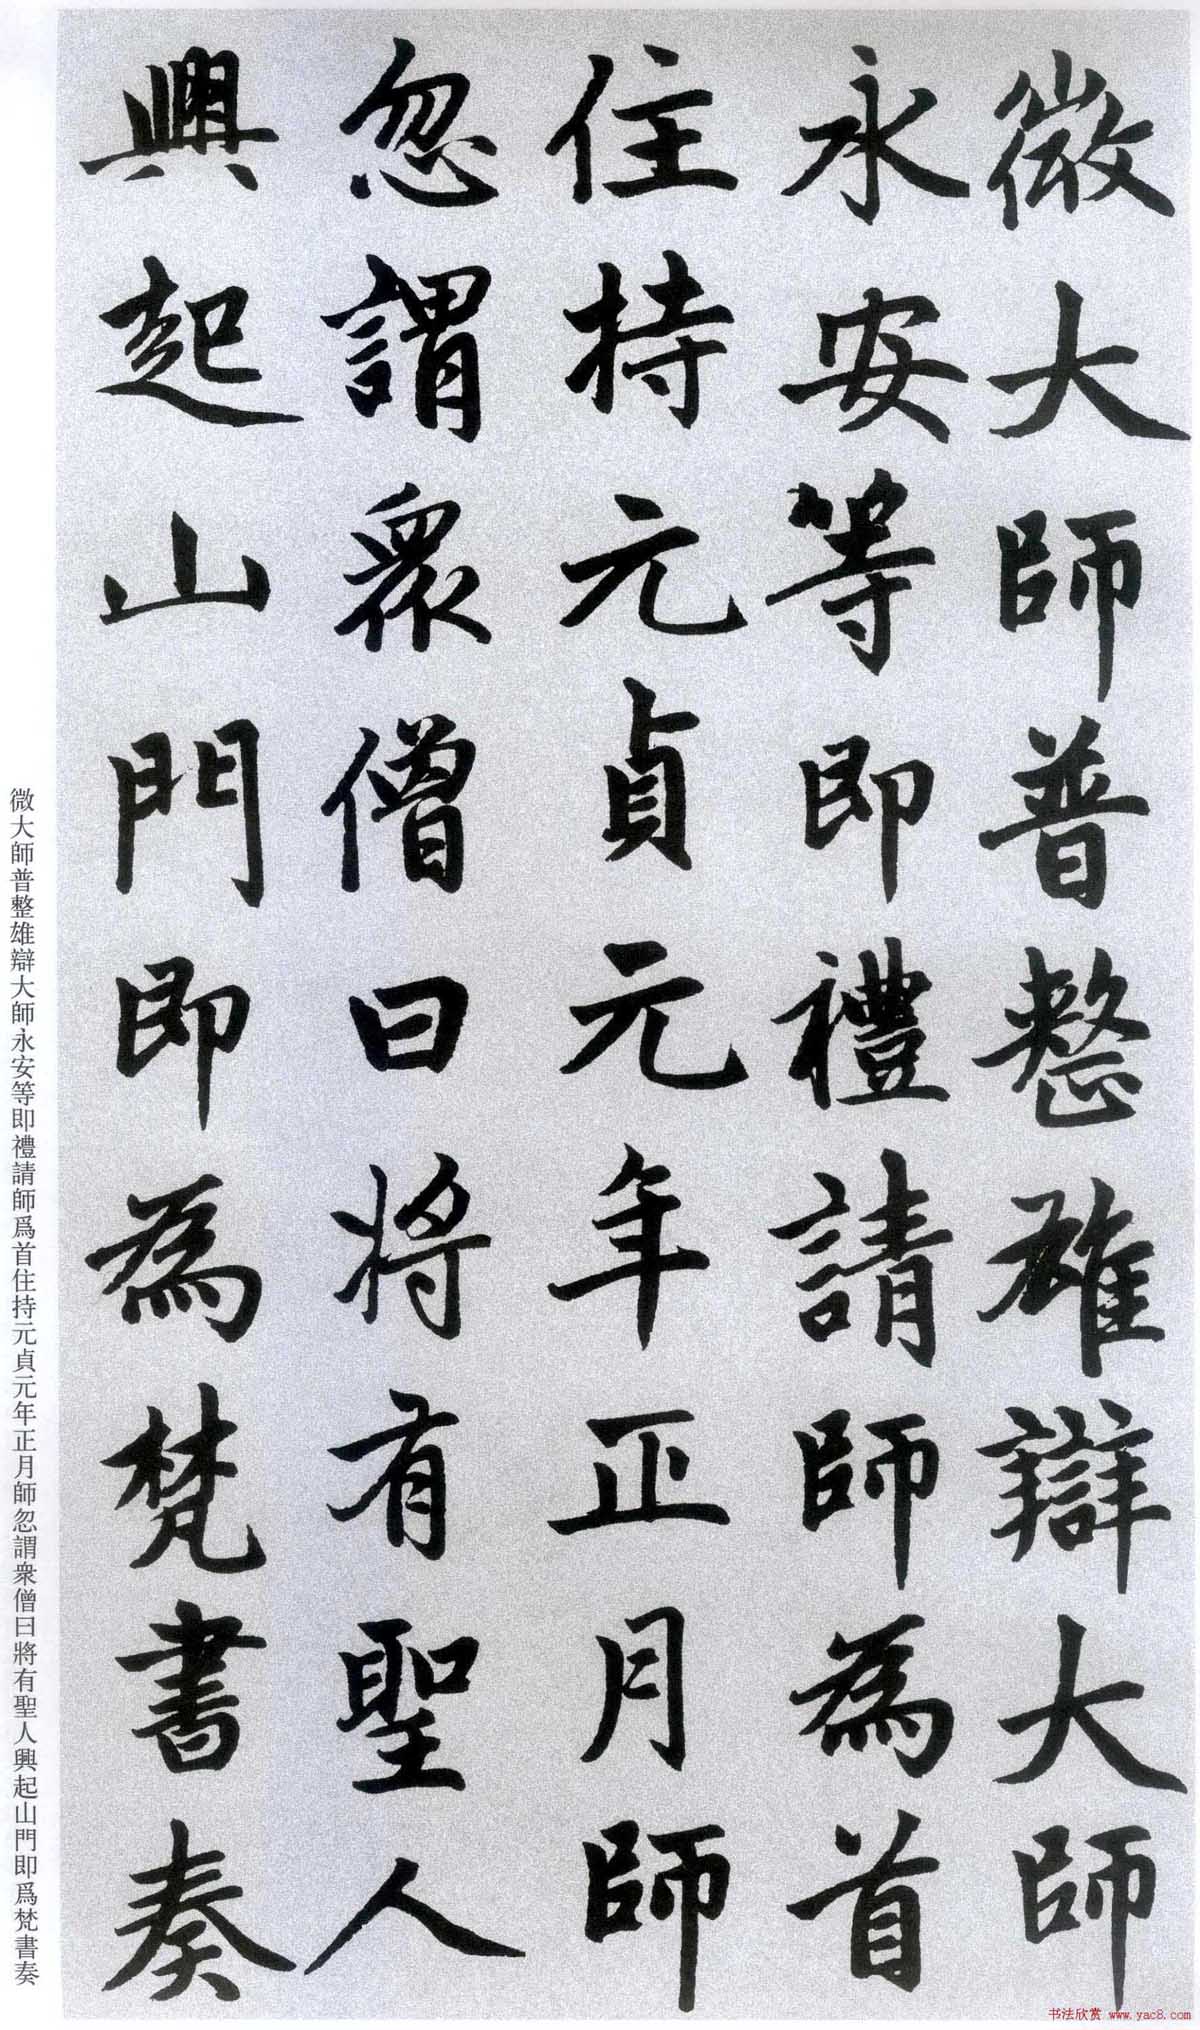 微大師普整雄辯大師
永安等即禮請師為首
住持元貞元年正月師
忽謂眾僧曰将有聖人
興起山門即為梵書奏
微大師普整雄辯大師永安等即禮請師爲首住持元貞元年正月師忽謂衆僧曰將有聖人興起山門即爲梵書奏
书法欣赏 www.yac8.com